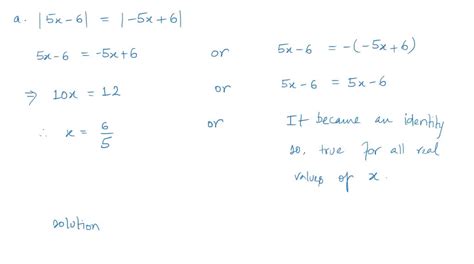 a. |5x-6| = |-5x+6|
5x-6 = -5x+6 or 5x-6 = -(-5x+6)
⇒ 10x = 12 or 5x-6 = 5x-6
∴ x = 6/5 or It became an identity
so, true for all real
values of x.
solution